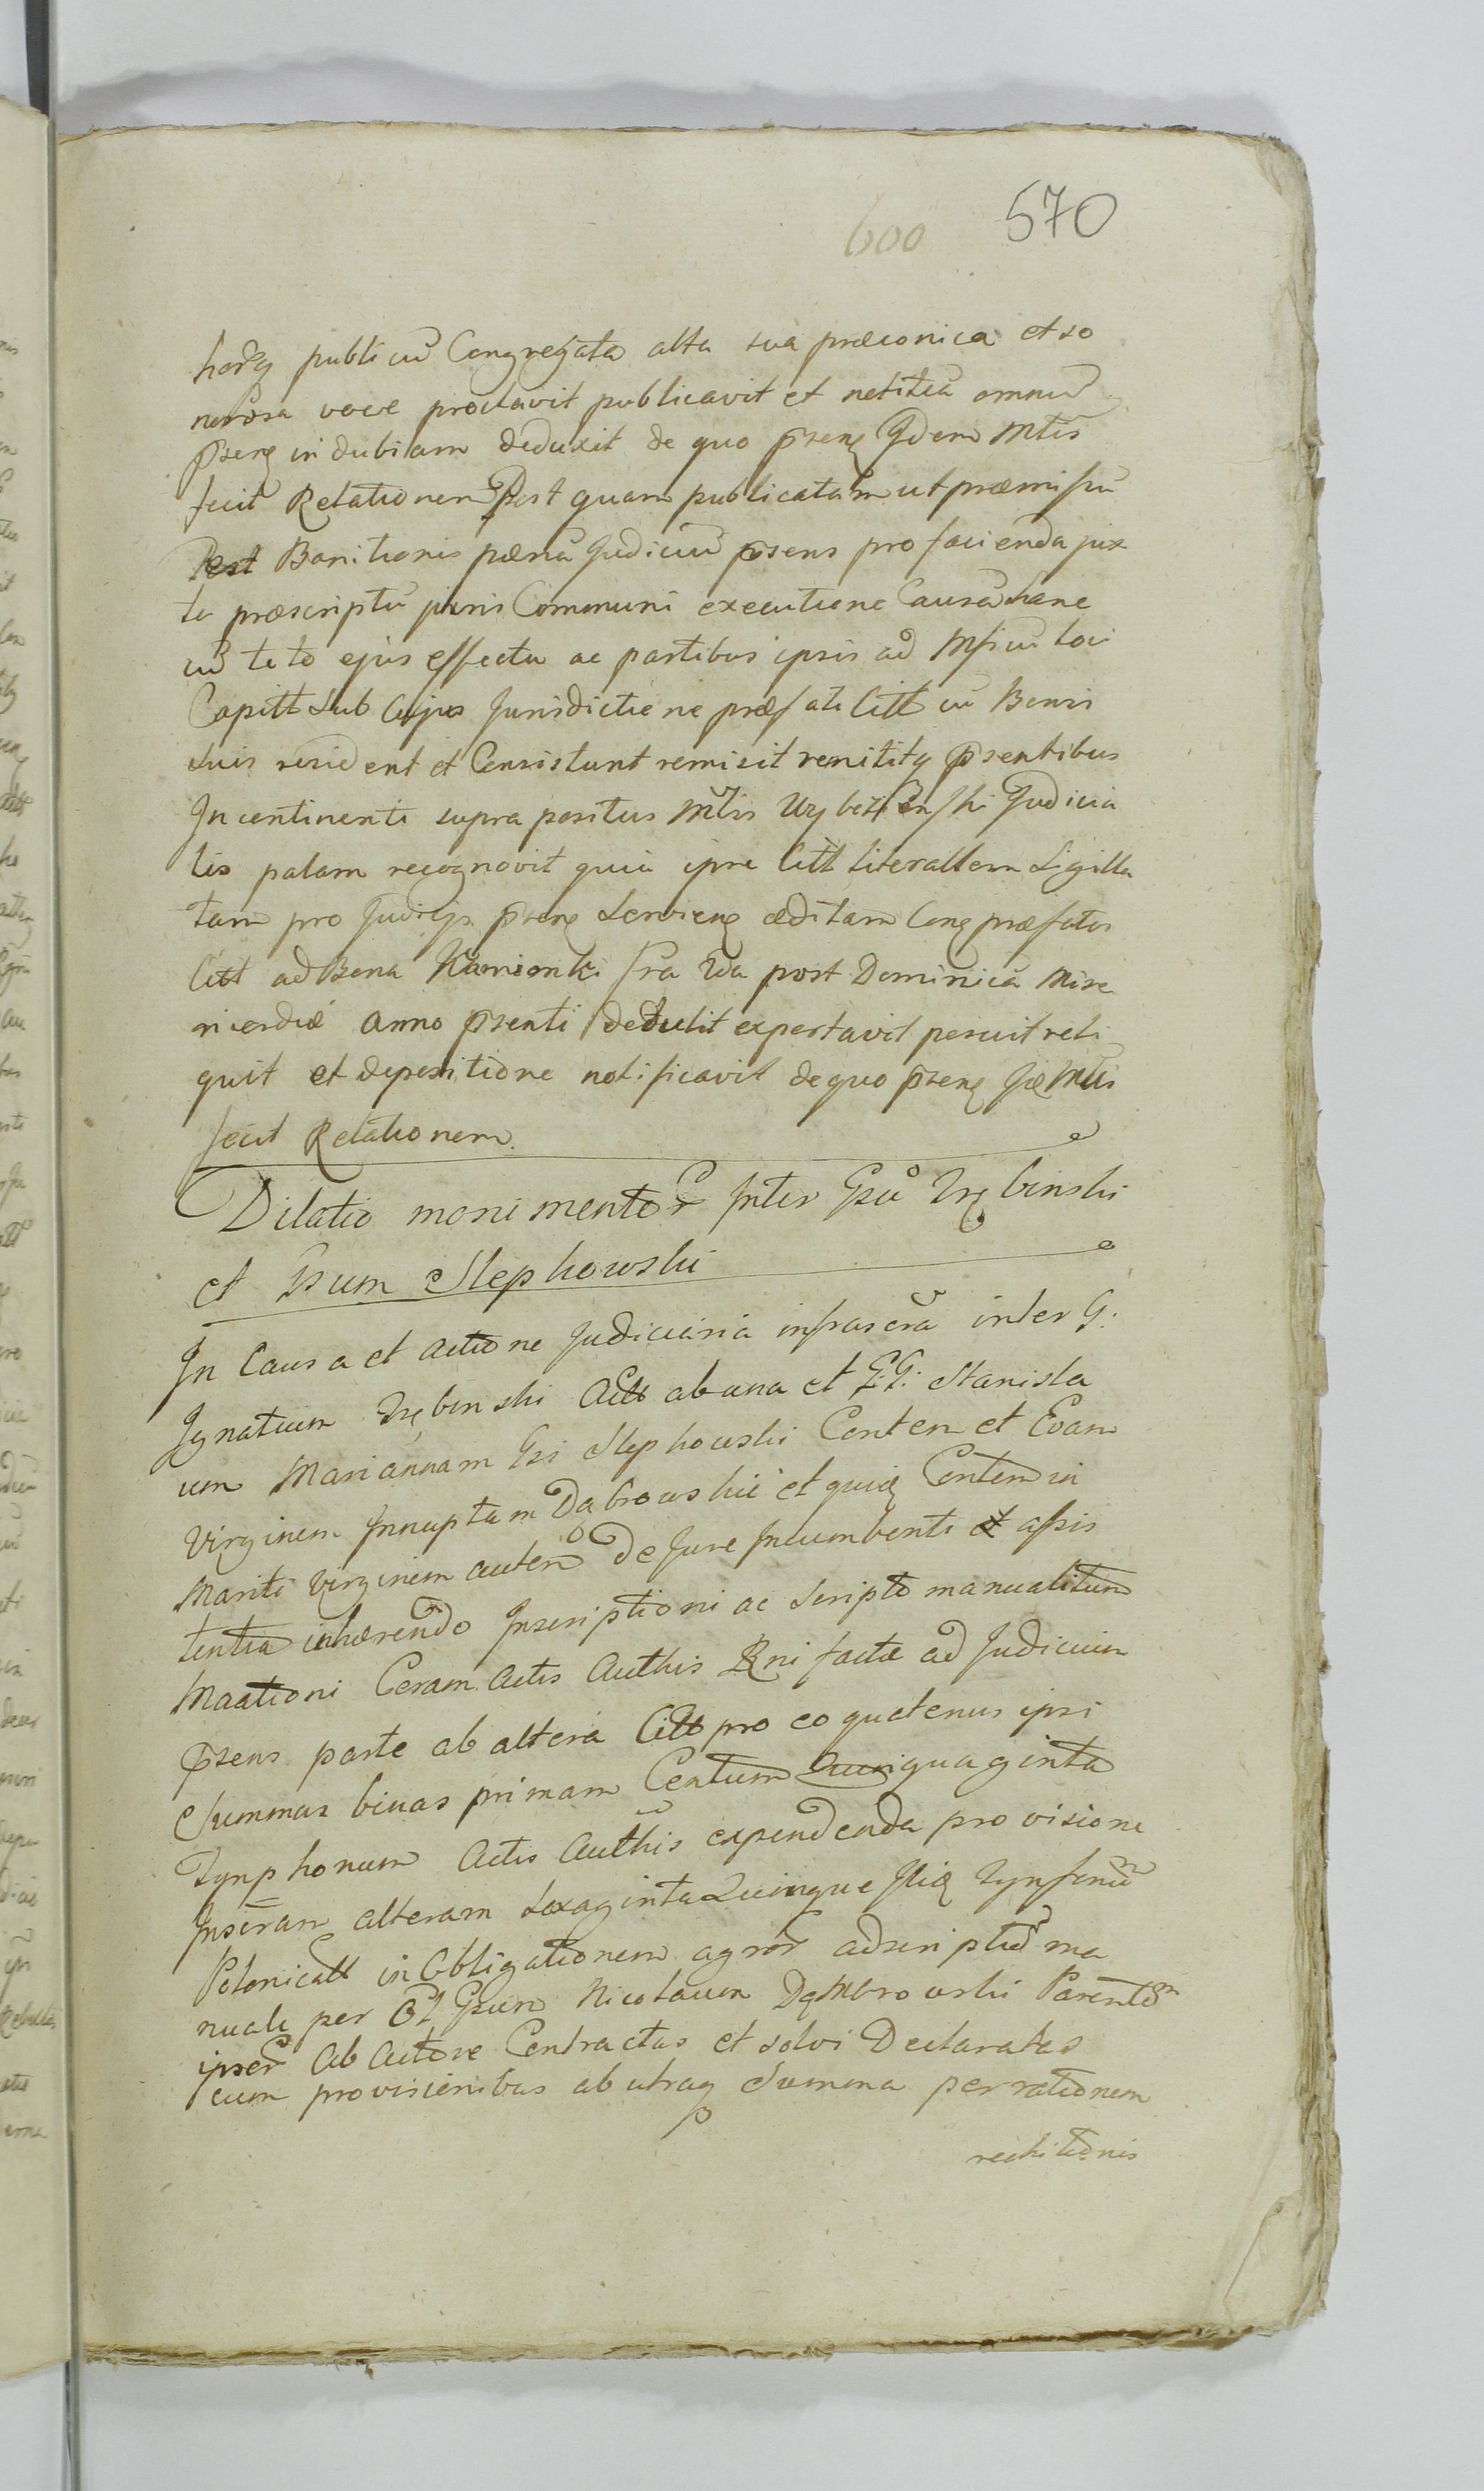 600 570
publicũ Congregata alta sua præconica et so
norosa voce proclavit publicavit et notitiã omniũ
in dubiam deduxit de quo Mtis
fecit Relationem Post quam publicatam ut præmissũ
Post Banitionis pœnã Judiciũ psens pro facienda jux
ta præscriptũ juris Communi executione Causã hanc
cũ toto ejus effectu ac partibus ipsis ad loci
Capitt sub Cujus Jurisdictione præfati Citt cũ Bonis
suis resident et Consistunt remisit remititq psentibus
In continenti supra positus Mtis Judicia
lis palam recognovit quia ipse Citt literallem Sigilla
tam pro Judicys æditam præfatos
Citt ad Bona Kamionki fra 2da post Dominicã Mise
ricordiæ anno psenti detulit exportavit posuit reli
quit et depositione notificavit de quo Mtis
fecit Relationem
Dilatio monimentor Inter Gsũ Trębinski
et Gsum Slepkowski
In Causa et actione Judiciaria infrascra inter G:
Ignatium Trębinski Act ab una et G:G: Stanisla
um Mariannam Gsi Slepkowski Conten et Evam
Virginem Innuptam Dąbrowskie et quidę Contem in
Mariti Virginem autem De Jure Incumbenti et assis
tentia inhærendo Inscriptioni ac Scripto manualitum
Maationi Coram Actis Authis factæ ad Judicium
psens parte ab altera Citt pro eo quatenus ipsi
Summas binas primam Centum Quinquaginta
Tynphonum Actis Authis expendenda provisione
Inscram alteram Sexaginta Quinque Tynfonũ
Polonicall in Obligationem agror adscriptũ ma
nuale per Ol Gsum Nicolaum Dąmbrowski Parentem
ipsor ab Actore Contractas et solvi Declaratas
cum provisionibus ab utraq Summa per rationem